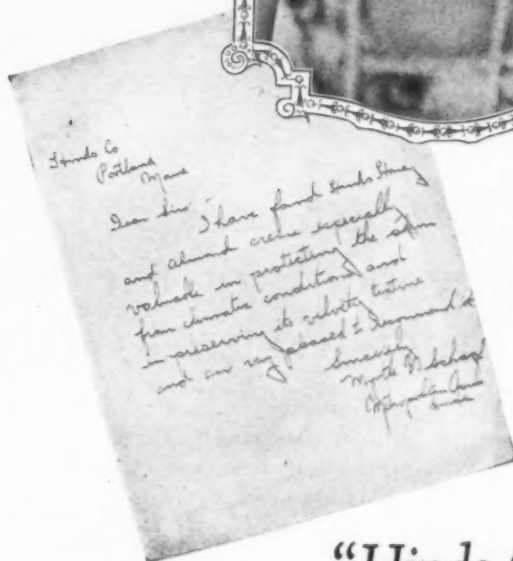 Hinds Co
Portland
Maine
Dear Sir
I have found Hinds Honey
and almond creme especially
valuable in protecting the skin
from climatic conditions and
in preserving its velvety texture
and am very pleased to recommend it
Sincerely
Myrtle
Metropolitan
"Hinds